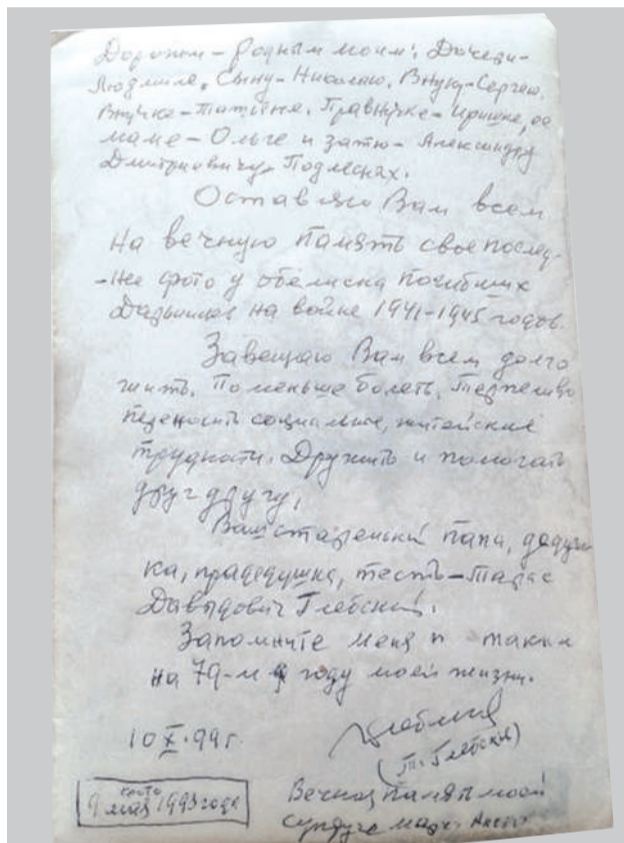 Дорогим – родным моим: Дочери –
Людмиле, Сыну – Николаю, Внуку – Сергею,
Внучке – Татьяне, Правнучке – Иришке, ее
маме – Ольге и зятю – Александру
Дмитриевичу Подлесных.
Оставляю Вам всем
на вечную память свое послед-
-нее фото у обелиска погибших
на войне 1941–1945 годов.
Завещаю Вам всем долго
жить. Поменьше болеть. Терпеливо
переносить социальные, житейские
трудности. Дружить и помогать
друг другу.
Ваш старенький папа, дедуш
ка, прадедушка, тесть – Тарас
Давыдович Глебский.
Запомните меня и таким
на 79-м году моей жизни.
10 X. 99г.
(Т. Глебский)
фото
9 мая 1993 года
Вечная память моей
супруге